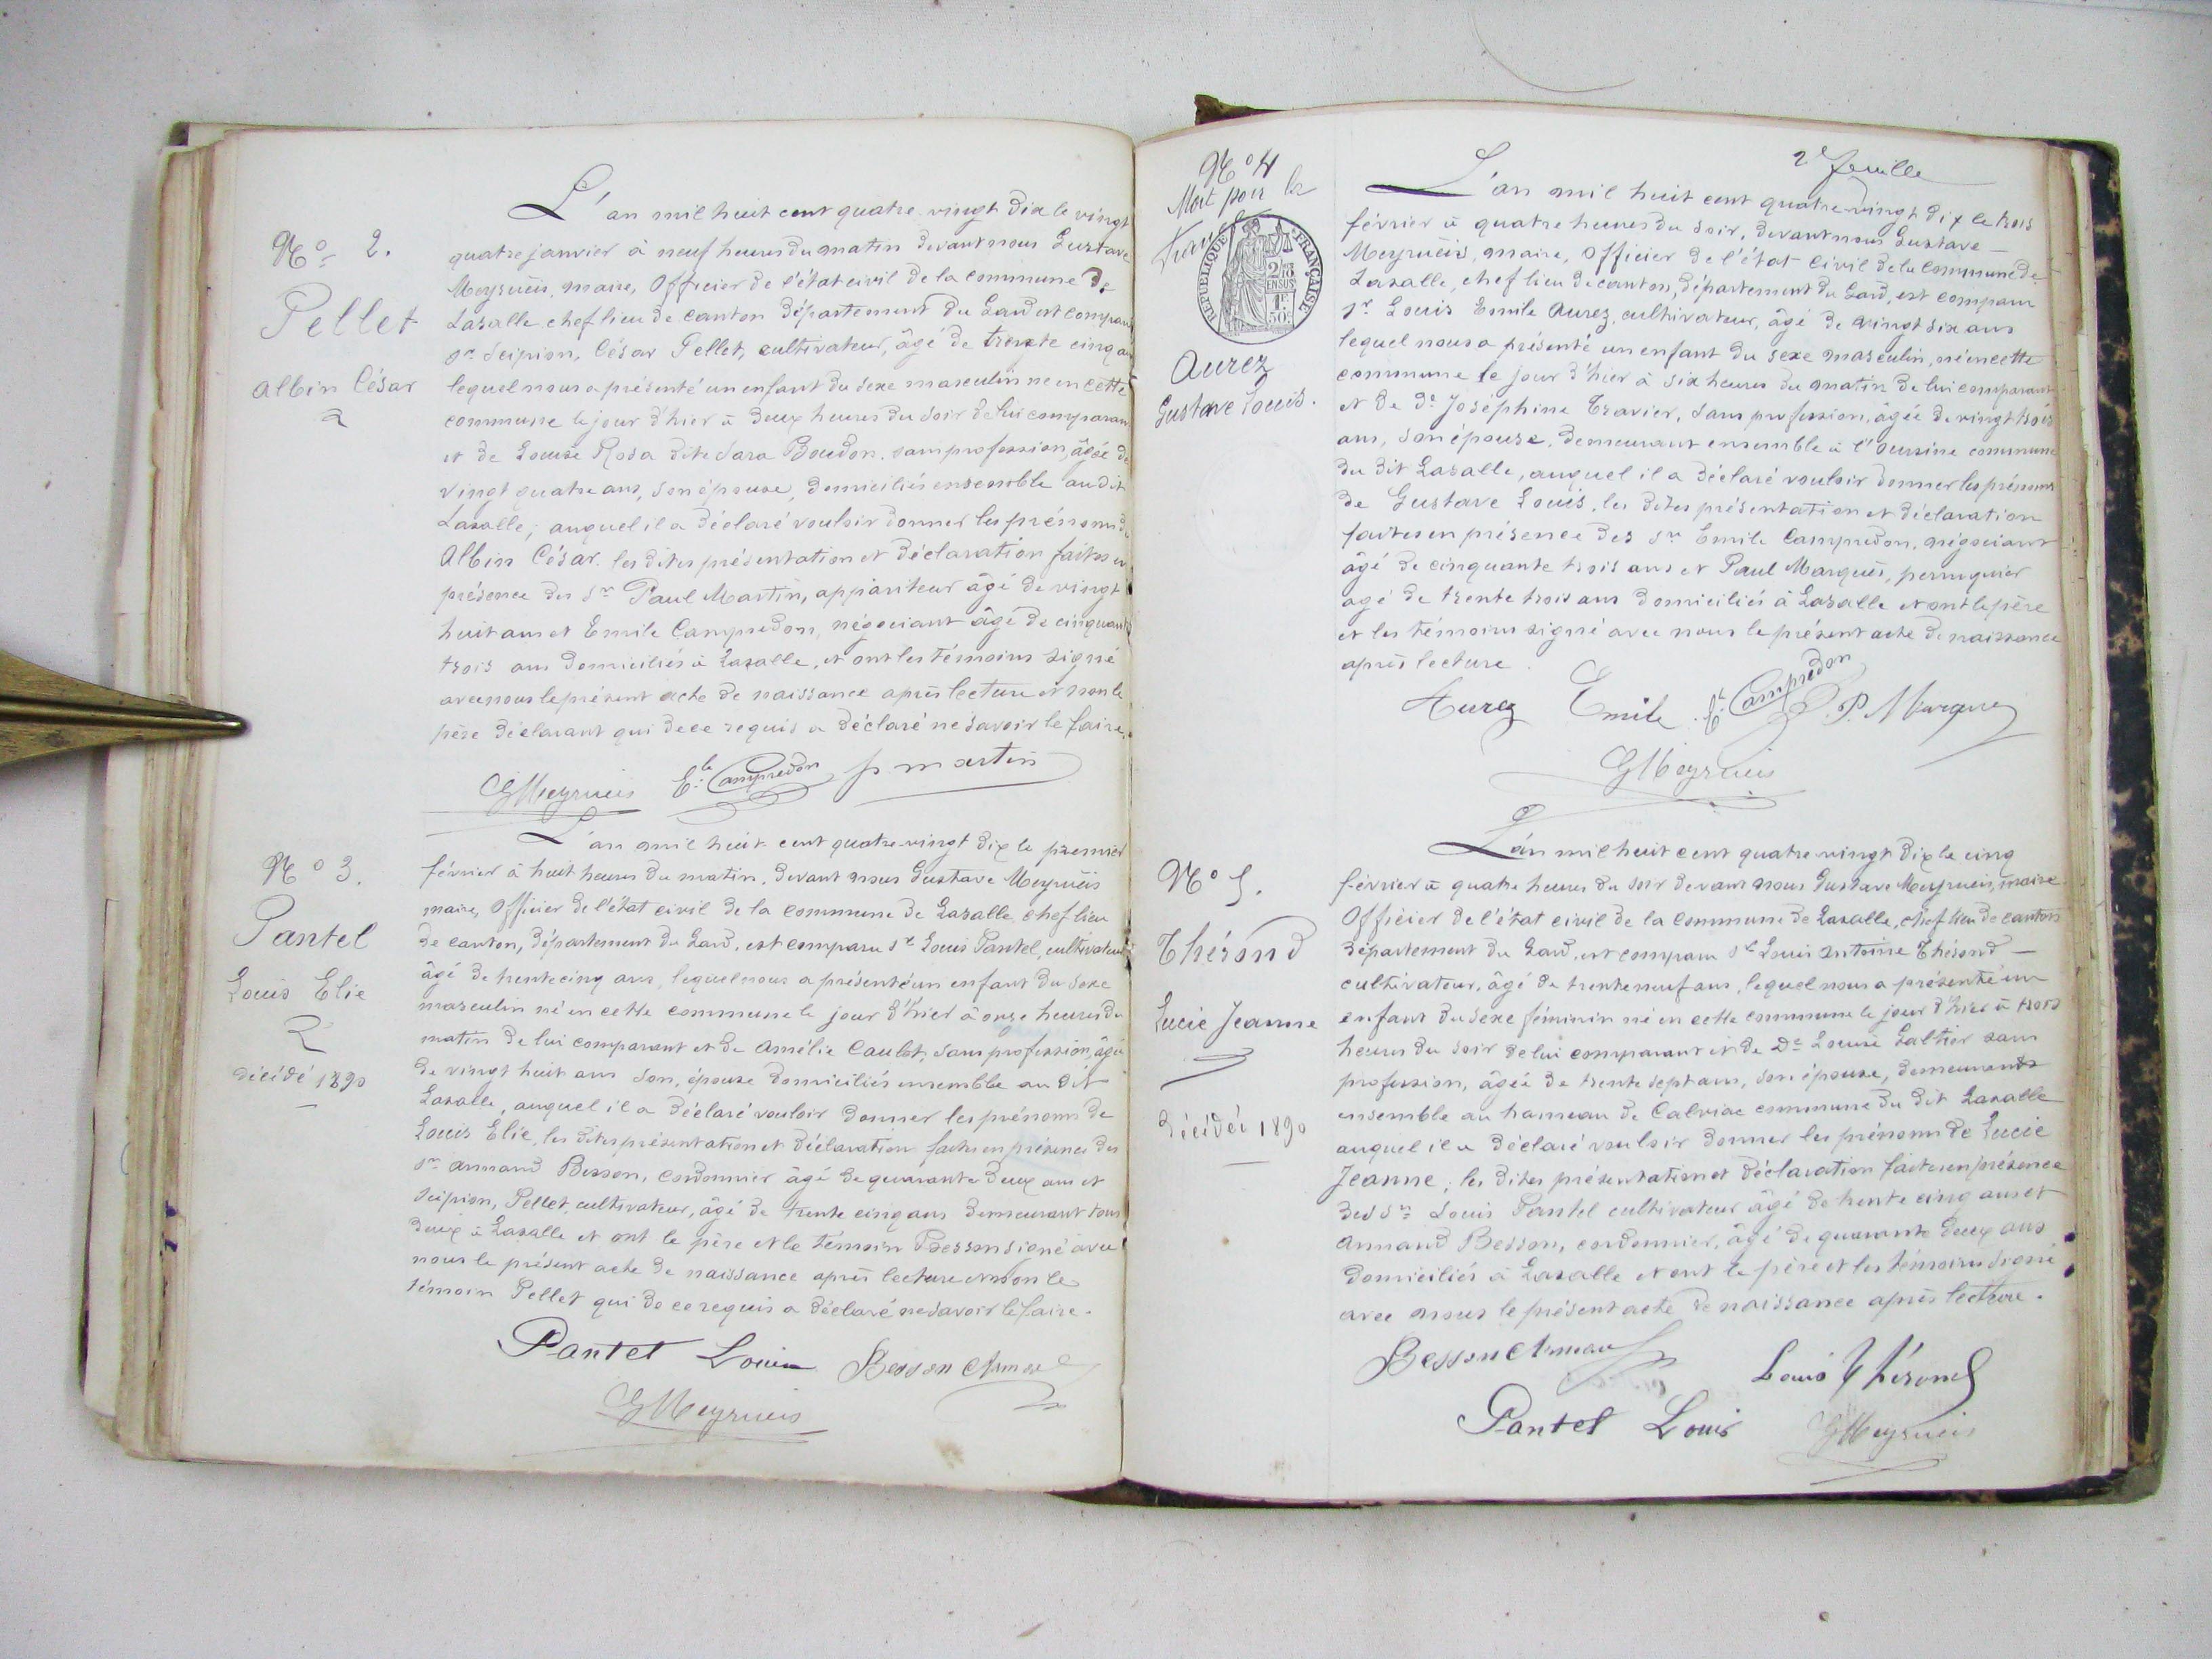 L'an mil huit cent quatre-vingt dix le vingt
N° 2.
quatre janvier à neuf heures du matin devant nous Gustave
Meyrueis, maire, Officier de l'état civil de la commune de
Pellet
Lasalle chef lieu de canton département du Gard est comparu
sr Scipion, César Pellet, cultivateur, âgé de trente cinq ans
Albin César
lequel nous a présenté un enfant du sexe masculin né en cette
commune le jour d'hier à deux heures du soir de lui comparant
et de Louise Rosa dite Sara Boudon, sans profession, âgée de
vingt quatre ans, son épouse, domiciliés ensemble au dit
Lasalle; auquel il a déclaré vouloir donner les prénoms de
Albin César. les dites présentation et déclaration faites en
présence des srs Paul Martin, appariteur âgé de vingt
huit ans et Emile Campredon, négociant âgé de cinquante
trois ans domiciliés à Lasalle, et ont les témoins signé
avec nous le présent acte de naissance après lecture et non le
père déclarant qui de ce requis a déclaré ne savoir le faire.
GMeyrueis Ele Campredon p martin
L'an mil huit cent quatre-vingt dix le premier
N° 3.
février à huit heures du matin, devant nous Gustave Meyrueis
maire, Officier de l'état civil de la commune de Lasalle chef lieu
Pantel
de canton, département du Gard, est comparu sr Louis Pantel, cultivateur
âgé de trente cinq ans, lequel nous a présenté un enfant du sexe
Louis Elie
masculin né en cette commune le jour d'hier à onze heures du
matin de lui comparant et de Amélie Caulet, sans profession, âgée
décédé 1890
de vingt huit ans son, épouse domiciliés ensemble au dit
Lasalle, auquel il a déclaré vouloir donner les prénoms de
Louis Elie, les dites présentation et déclaration faites en présence des
srs Armand Besson, cordonnier âgé de quarante deux ans et
Scipion, Pellet, cultivateur, âgé de trente cinq ans demeurant tous
deux à Lasalle et ont le père et le témoin Besson signé avec
nous le présent acte de naissance après lecture et non le
témoin Pellet qui de ce requis a déclaré ne savoir le faire.
Pantel Louis Besson Armand
GMeyrueis
2e feuille
N° 4
Mort pour la
France
RÉPUBLIQUE FRANÇAISE
2/10 EN SUS
1F 50c
Aurez
Gustave Louis.
L'an mil huit cent quatre-vingt dix le trois
février à quatre heures du soir, devant nous Gustave
Meyrueis, maire, Officier de l'état civil de la commune de
Lasalle, chef lieu de canton, département du Gard, est comparu
sr Louis Emile Aurez, cultivateur, âgé de vingt six ans
lequel nous a présenté un enfant du sexe masculin, né en cette
commune le jour d'hier à six heures du matin de lui comparant
et de de Joséphine Travier, sans profession, âgée de vingt trois
ans, son épouse, demeurant ensemble à l' commune
du dit Lasalle, auquel il a déclaré vouloir donner les prénoms
de Gustave Louis, les dites présentation et déclaration
faites en présence des srs Emile Campredon, négociant
âgé de cinquante trois ans et Paul Marquès, perruquier
agé de trente trois ans domiciliés à Lasalle et ont le père
et les témoins signé avec nous le présent acte de naissance
après lecture.
Aurez Emile Ele Campredon P. Marques
GMeyrueis
L'an mil huit cent quatre-vingt dix le cinq
N° 5.
février à quatre heures du soir devant nous Gustave Meyrueis, maire
Officier de l'état civil de la commune de Lasalle, chef lieu de canton
Thérond
département du Gard, est comparu sr Louis Antoine Thérond —
cultivateur, âgé de trente neuf ans, lequel nous a présenté un
Lucie Jeanne
enfant du sexe féminin né en cette commune le jour d'hier à trois
heures du soir de lui comparant et de De Louise Galtier sans
profession, âgée de trente sept ans, son épouse, demeurants
décédée 1890
ensemble au hameau de Calviac commune du dit Lasalle
auquel il a déclaré vouloir donner les prénoms de Lucie
Jeanne; les dites présentation et déclaration faites en présence
des srs Louis Pantel cultivateur âgé de trente cinq ans et
Armand Besson, cordonnier, âgé de quarante deux ans
domiciliés à Lasalle et ont le père et les témoins signé
avec nous le présent acte de naissance après lecture.
Besson Armand Louis Thérond
Pantel Louis GMeyrueis